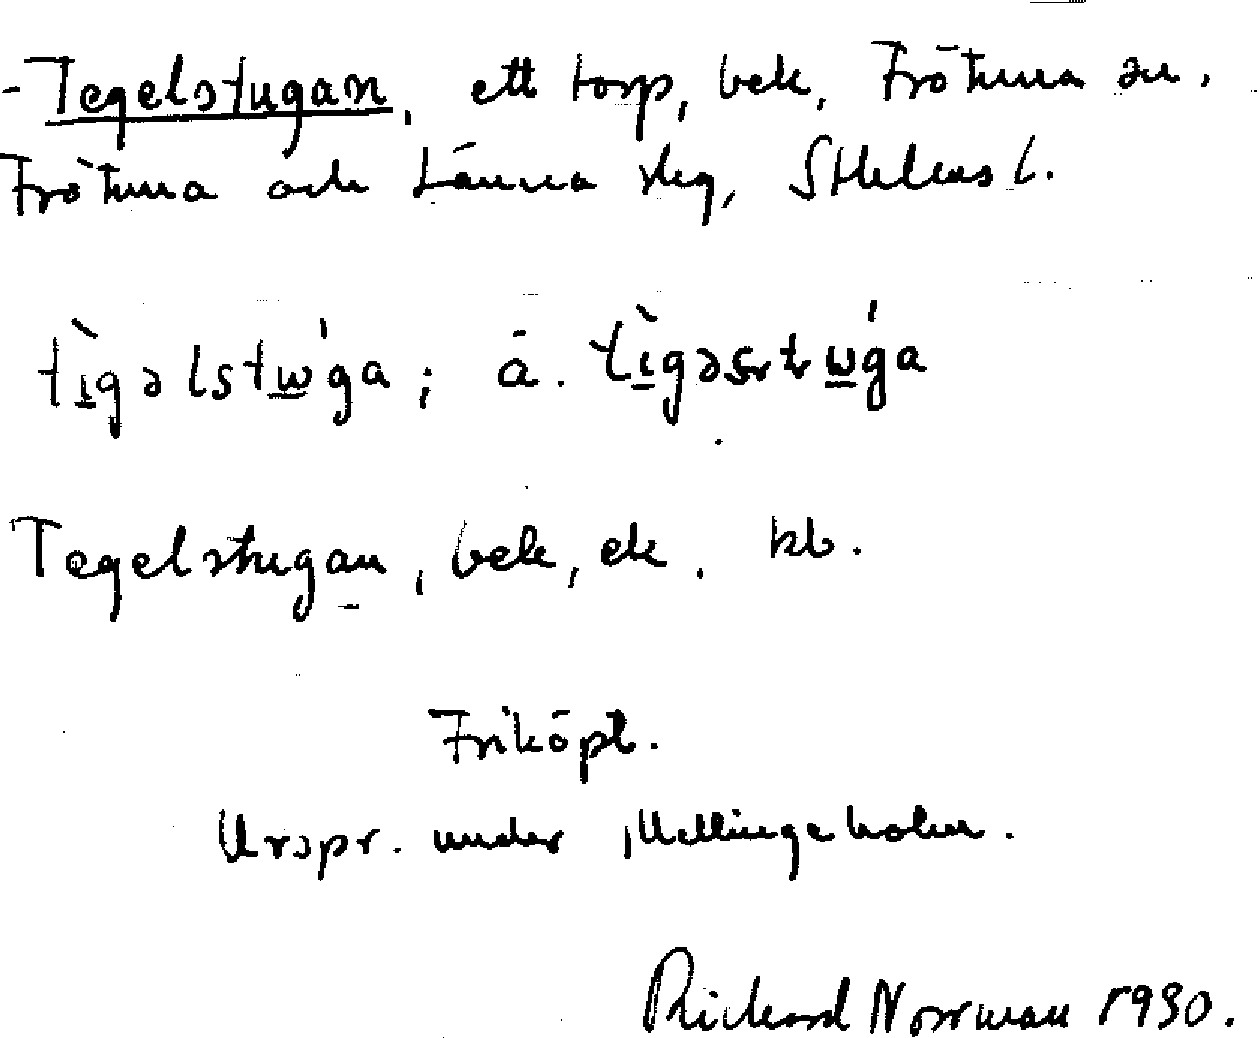 - Tegelstugan, ett torp, bek, Frötuna sn,
Frötuna och Länna skg, Sthlms l.
tìgəlstwǵa; ä. tìgəstwǵa
Tegelstugan, bek, ek. kb.
Friköpt.
Urspr. under Mellingeholm.
Rickard Norrman 1930.